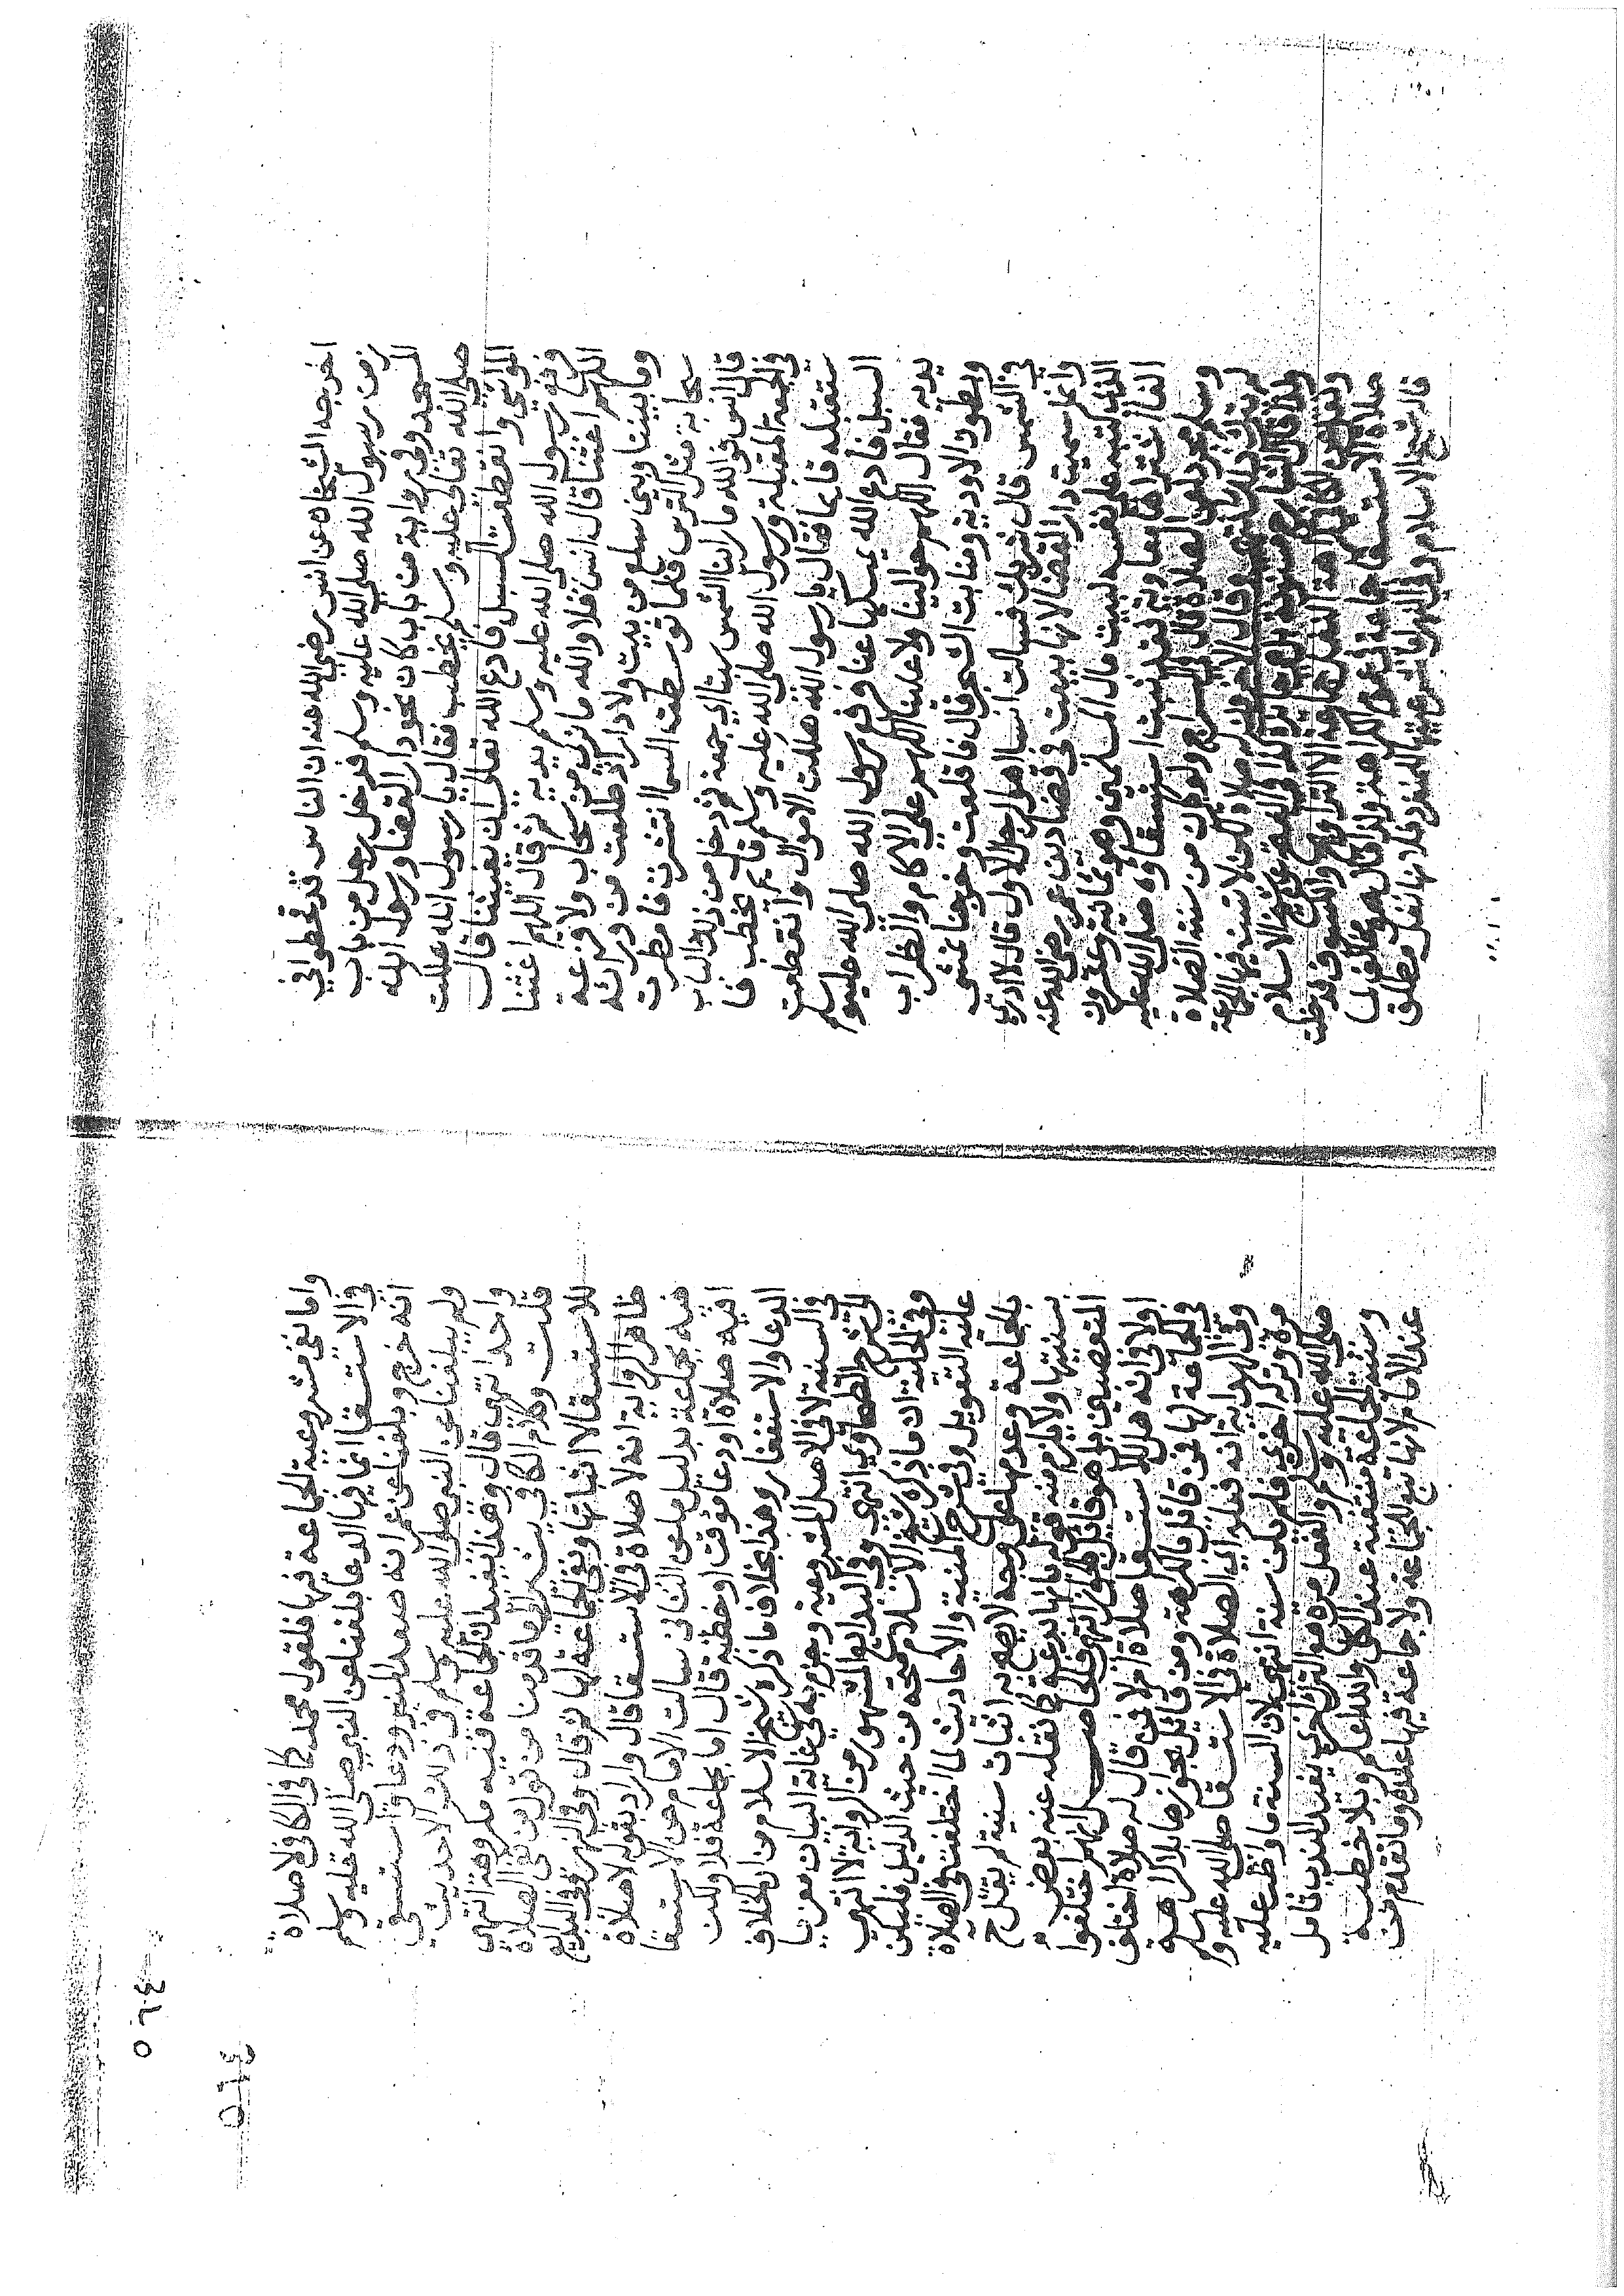 اخرجه الشيخان عن انس رضي الله عنه ان الناس قد قحطوا في
زمن رسول الله صلي الله عليه وسلم فدخل رجل من باب
المسجد وفي رواية من باب كان نحو دار القضا ورسول الله
صلي الله تعالي عليه وسلم يخطب فقال يا رسول الله هلكت
المواشي وانقطعت السبل فادع الله تعالي ان يغيثنا قال
فرفع رسول الله صلي الله عليه وسلم يديه ثم قال اللهم اغثنا
اللهم اغثنا قال انس فلا والله ما نري من سحاب ولا قزعة
وما بيننا وبين سلع من بيت ولا دار اذ طلعت من ورائه
سحابة مثل الترس فلما توسطت السما انتشرت فامطرت
قال انس فوالله ما راينا الشمس سبتا اي جمعة ثم دخل من ذلك الباب
في الجمعة المقبلة ورسول الله صلي الله عليه وسلم قايم يخطب فا
ستقبله قايما فقال يا رسول الله هلكت الاموال وانقطعت
السبل فادع الله يمسكها عنا فرفع رسول الله صلي الله عليه وسلم
يديه فقال اللهم حوالينا ولا علينا اللهم علي الاكام والظراب
وبطون الاودية ومنابت الشجر قال فاقلعت وخرجنا نمشي
في الشمس قال شريك فسالت انسا اهو الرجل الاول قال لا ادري
وانما سميت دار القضا لانها بيعت في قضا دين عمر رضي الله عنه
الذي كتبه علي نفسه لبيت مال المسلمين وهو ثمانية وعشرون
الفا اشتراها معاوية فقد ثبت استسقاؤه صلي الله عليه
وسلم ولم الصلاة قال في السراج ولو كان من سننه الصلاة
لم يترك ذلك انتهي وقال الاخوان صلاة لكن لا تسن فيها الجماعة
ولذا قال الشارح شيخ الاسلام
ونقل عن الكافي كراهة النفل جماعة الا التراويح والكسوف قد علمت
صلاة الاستسقا جماعة في عموم الكراهة ولذا قال هو مكفرلنا
قال شيخ الاسلام وفي النهر مشروعيتها للمنفرد فلانها نفل مطلق
واما نفي مشروعية الجماعة فيها فلقول محمد كما في الكافي لا صلاة
في الاستسقا انما فيها الدعا بلغنا عن النبي صلي الله عليه وسلم
انه خرج ودعا وبلغنا عن عمر انه صعد المنبر ودعا واستسقي
ولم يبلغنا عن النبي صلي الله عليه وسلم في ذلك الا حديث
واحد انتهي قال وهذا يفيد ان الجماعة فيه مكروهة انتهي
قلت وكلام الكافي يشير الي ما قدمنا من قول من نفي الصلاة
للاستسقا الا اثباتها ونفي الجماعة لها ثم قال وفي النهر وفي البدايع
ظاهر الرواية انه لا صلاة في الاستسقا قال واراد بقوله لا صلاة
فيه بجماعة بدليل ما عن الثاني سالت الامام عن الاستسقا
افيه صلاة او دعا مؤقت او خطبة قال اما بجماعة فلا ولكن
الدعا والاستغفار وهذا بخلاف ما ذكره شيخ الاسلام من ان الخلاف
في السنية لا في الاصل المشروعية وجزم به في غاية البيان معزيا
الي شرح الطحاوي انتهي وفي البدايع المشهور من الرواية لا انتهي
وفي الحلية ان ما ذكره شيخ الاسلام متجه من حيث الدليل فليكن
عليه التعويل وفي شرح المنية والاحاديث لما اختلفت في الصلاة
بالجماعة وعدمها علي وجه لا يصح به اثبات سنية لم يقل ح
بسنيتها ولا يلزم منه قوله بانها بدعة كما نقله عنه بعض
المتعصبين بل هو قايل بالجواز انتهي فالحاصل انهم اختلفوا
اولا في انه هل للاستسقا صلاة ام لا فمن قال له صلاة اختلف
في الجماعة لها فمن قائل بالكراهة ومن قائل بجوازها بلا كراهة
وفي الهداية انه فعله اي الصلاة في الاستسقا صلي الله عليه وسلم
مرة وتركه اخري فلم يكن سنة انتهي لان السنة ما واظب عليه
صلي الله عليه وسلم والفعل مرة مع الترك اخري يفيد الندب تامل
وسنية الجماعة منتفية عند الكل والله اعلم وبلا خطبة
عند الامام لانها تبع للجماعة ولا جماعة فيها عنده وما تقدم من
٥٦٤